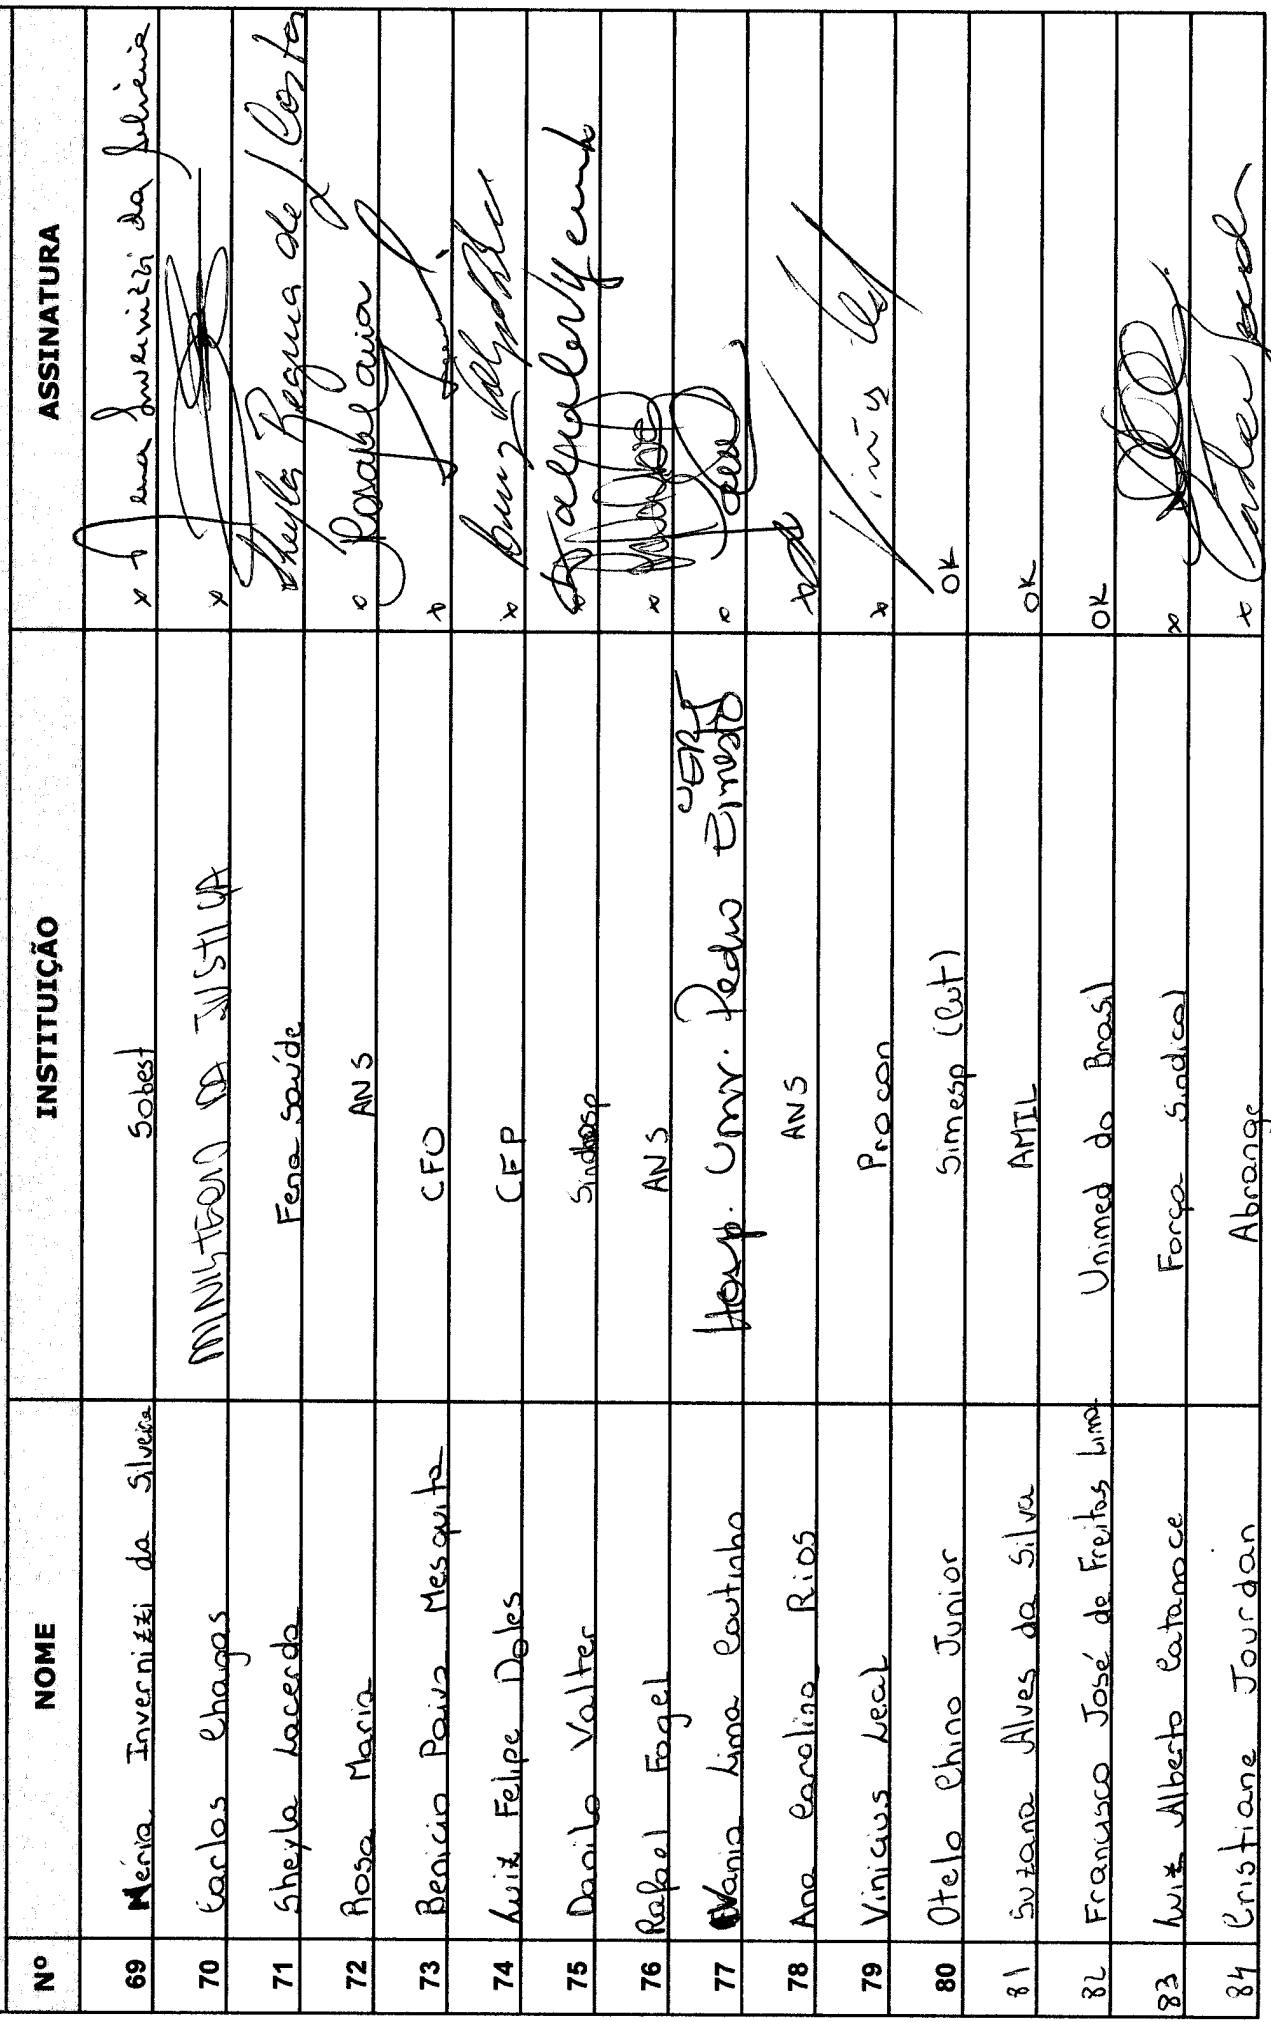 Nº NOME INSTITUIÇÃO ASSINATURA
69 Méria Invernizzi da Silveira Sobest x Invernizzi da Silveira
70 Carlos Chagas MINISTERIO DA JUSTIÇA x
71 Sheyla Lacerda Fena Saúde Sheyla Regina de J. Costa
72 Rosa Maria ANS x Rosa Maria
73 Benicio Paiva Mesquita CFO x
74 Luiz Felipe Doles CFP x
75 Danilo Valter Sindhosp x
76 Rafael Fogel ANS x
77 Vania Lima Coutinho Hosp. Univ. Pedro Ernesto UERJ x
78 Ana Carolina Rios ANS x
79 Vinicius Leal Procon x Vinicius Leal
80 Otelo Chino Junior Simesp (Cut) OK
81 Suzana Alves da Silva AMIL OK
82 Francisco José de Freitas Lima Unimed do Brasil OK
83 Luiz Alberto Catanoce Força Sindical x
84 Cristiane Jourdan Abrange x